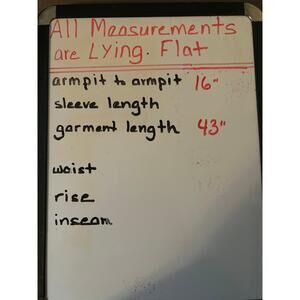 All Measurements
are Lying. Flat
armpit to armpit 16"
sleeve length
garment length 43"
waist
rise
inseam